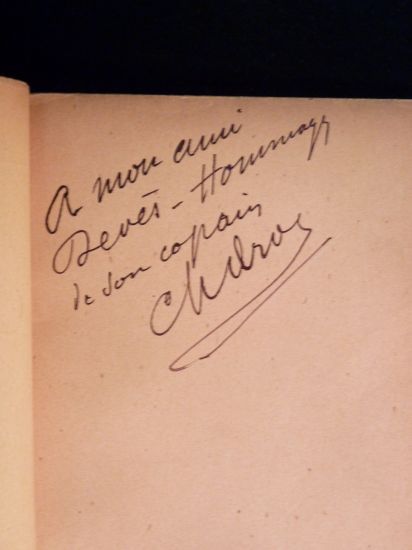 A mon ami
Devés - Hommage
de son copain